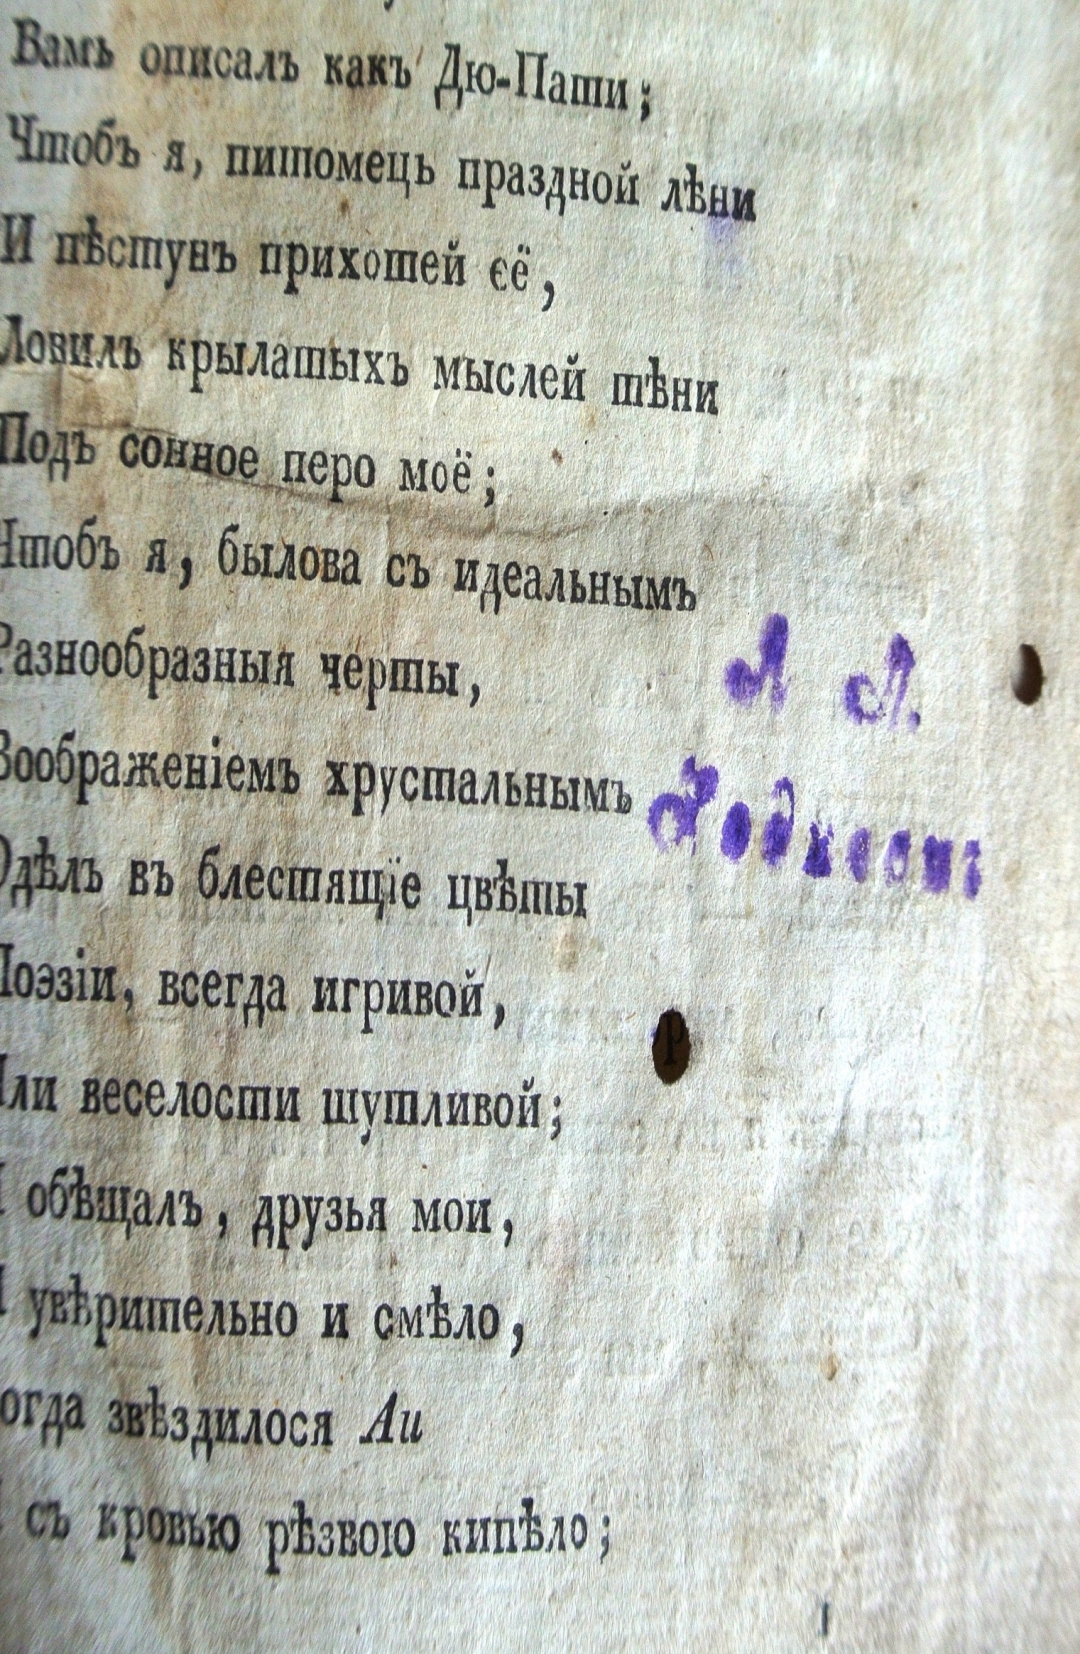 Вамъ описалъ какъ Дю-Пати;
Чтобъ я, питомецъ праздной лѣни
И пѣстунъ прихотей её,
Ловилъ крылатыхъ мыслей тѣни
Подъ сонное перо моё;
Чтобъ я, былова съ идеальнымъ
Разнообразныя черты,
Воображеніемъ хрустальнымъ
Одѣлъ въ блестящіе цвѣты
Поэзіи, всегда игривой,
Или веселости шутливой;
обѣщалъ, друзья мои,
увѣрительно и смѣло,
Когда звѣздилося Аи
съ кровью рѣзвою кипѣло;
А А.
р